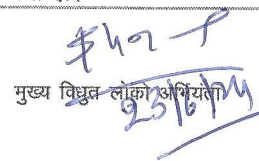 मुख्य विधुत लोको अभियंता
23/6/24